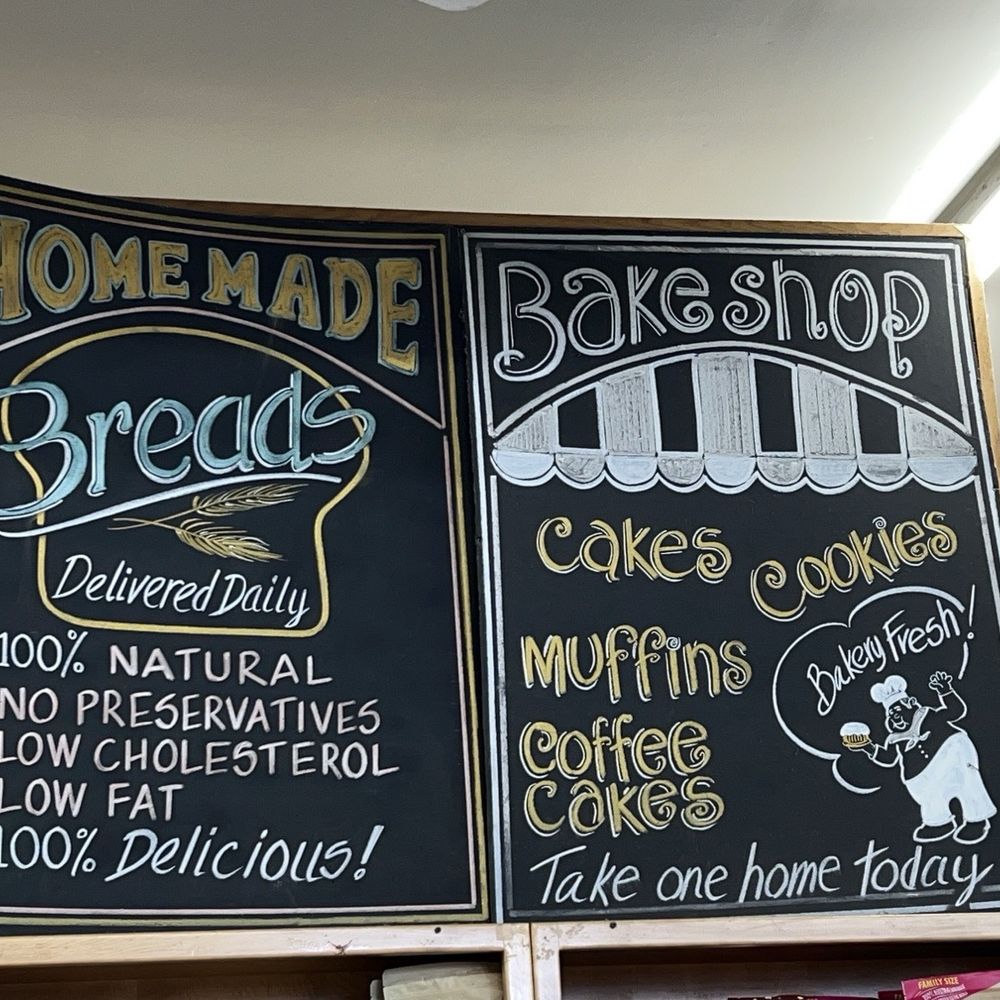 HOMEMADE
Breads
Delivered Daily
100% NATURAL
NO PRESERVATIVES
LOW CHOLESTEROL
LOW FAT
100% Delicious!
Bakeshop
Cakes
Cookies
Muffins
Coffee
Cakes
Bakery Fresh!
Take one home today
FAMILY SIZE